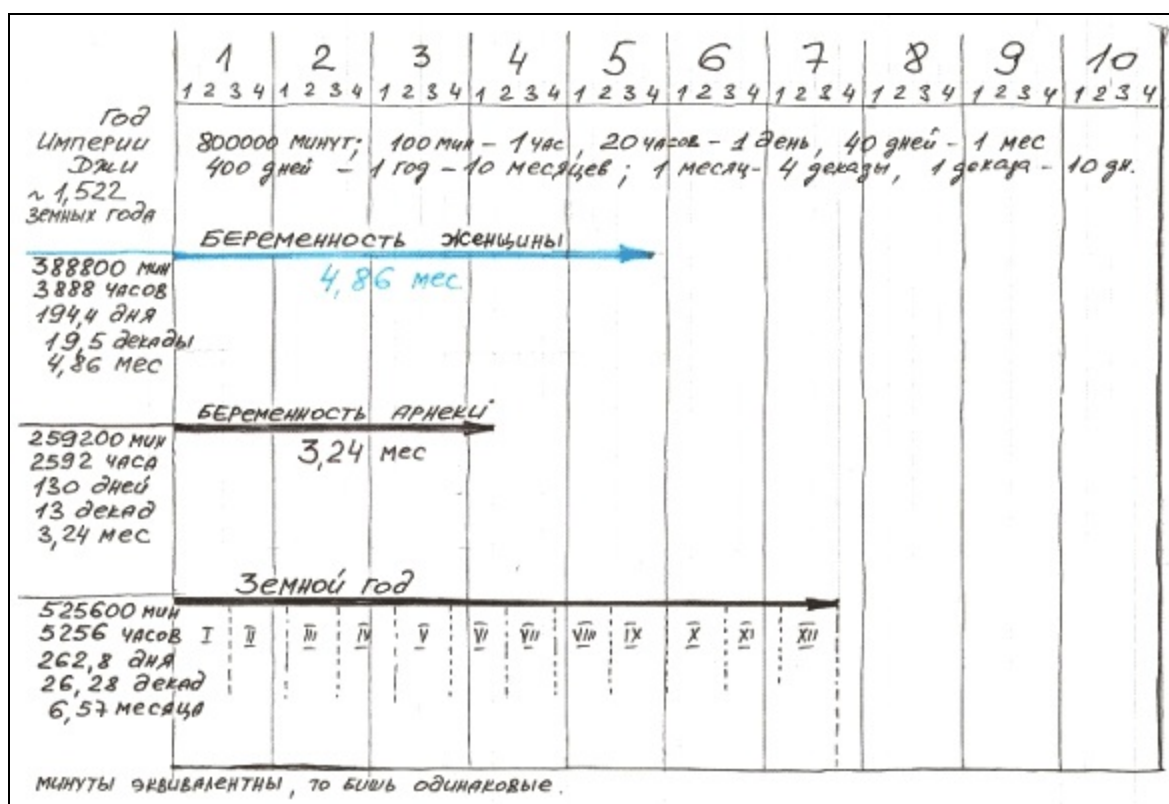 1 2 3 4 5 6 7 8 9 10
1 2 3 4 1 2 3 4 1 2 3 4 1 2 3 4 1 2 3 4 1 2 3 4 1 2 3 4 1 2 3 4 1 2 3 4 1 2 3 4
Год
Империи
Джи
~ 1,522
земных года
800000 минут; 100 мин - 1 час, 20 часов - 1 день, 40 дней - 1 мес
400 дней - 1 год - 10 месяцев; 1 месяц - 4 декады, 1 декада - 10 дн.
БЕРЕМЕННОСТЬ ЖЕНЩИНЫ
4,86 мес
388800 мин
3888 часов
194,4 дня
19,5 декады
4,86 мес
БЕРЕМЕННОСТЬ АРНЕКЦ
3,24 мес
259200 мин
2592 часа
130 дней
13 декад
3,24 мес
Земной год
525600 мин
5256 часов
262,8 дня
26,28 декад
6,57 месяца
I II III IV V VI VII VIII IX X XI XII
минуты эквивалентны, то бишь одинаковые.